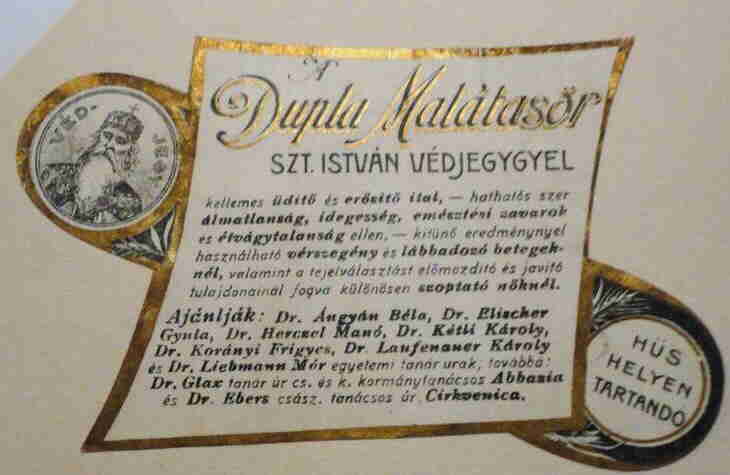 VÉD-JEGY
A
Dupla Malátasör
SZT. ISTVÁN VÉDJEGYGYEL
kellemes üditő és erősitő ital, — hathatós szer
álmatlanság, idegesség, emésztési zavarok
és étvágytalanság ellen, — kitünő eredménynyel
használható vérszegény és lábbadozó betegek-
nél, valamint a tejelválasztást előmozditó és javitó
tulajdonainál fogva különösen szoptató nőknél.
Ajánlják: Dr. Angyán Béla, Dr. Elischer
Gyula, Dr. Herczel Manó, Dr. Kétli Károly,
Dr. Korányi Frigyes, Dr. Laufenauer Károly
és Dr. Liebmann Mór egyetemi tanár urak, továbbá:
Dr. Glax tanár úr cs. és k. kormánytanácsos Abbazia
és Dr. Ebers csász. tanácsos úr Cirkvenica.
HÜS
HELYEN
TARTANDÓ